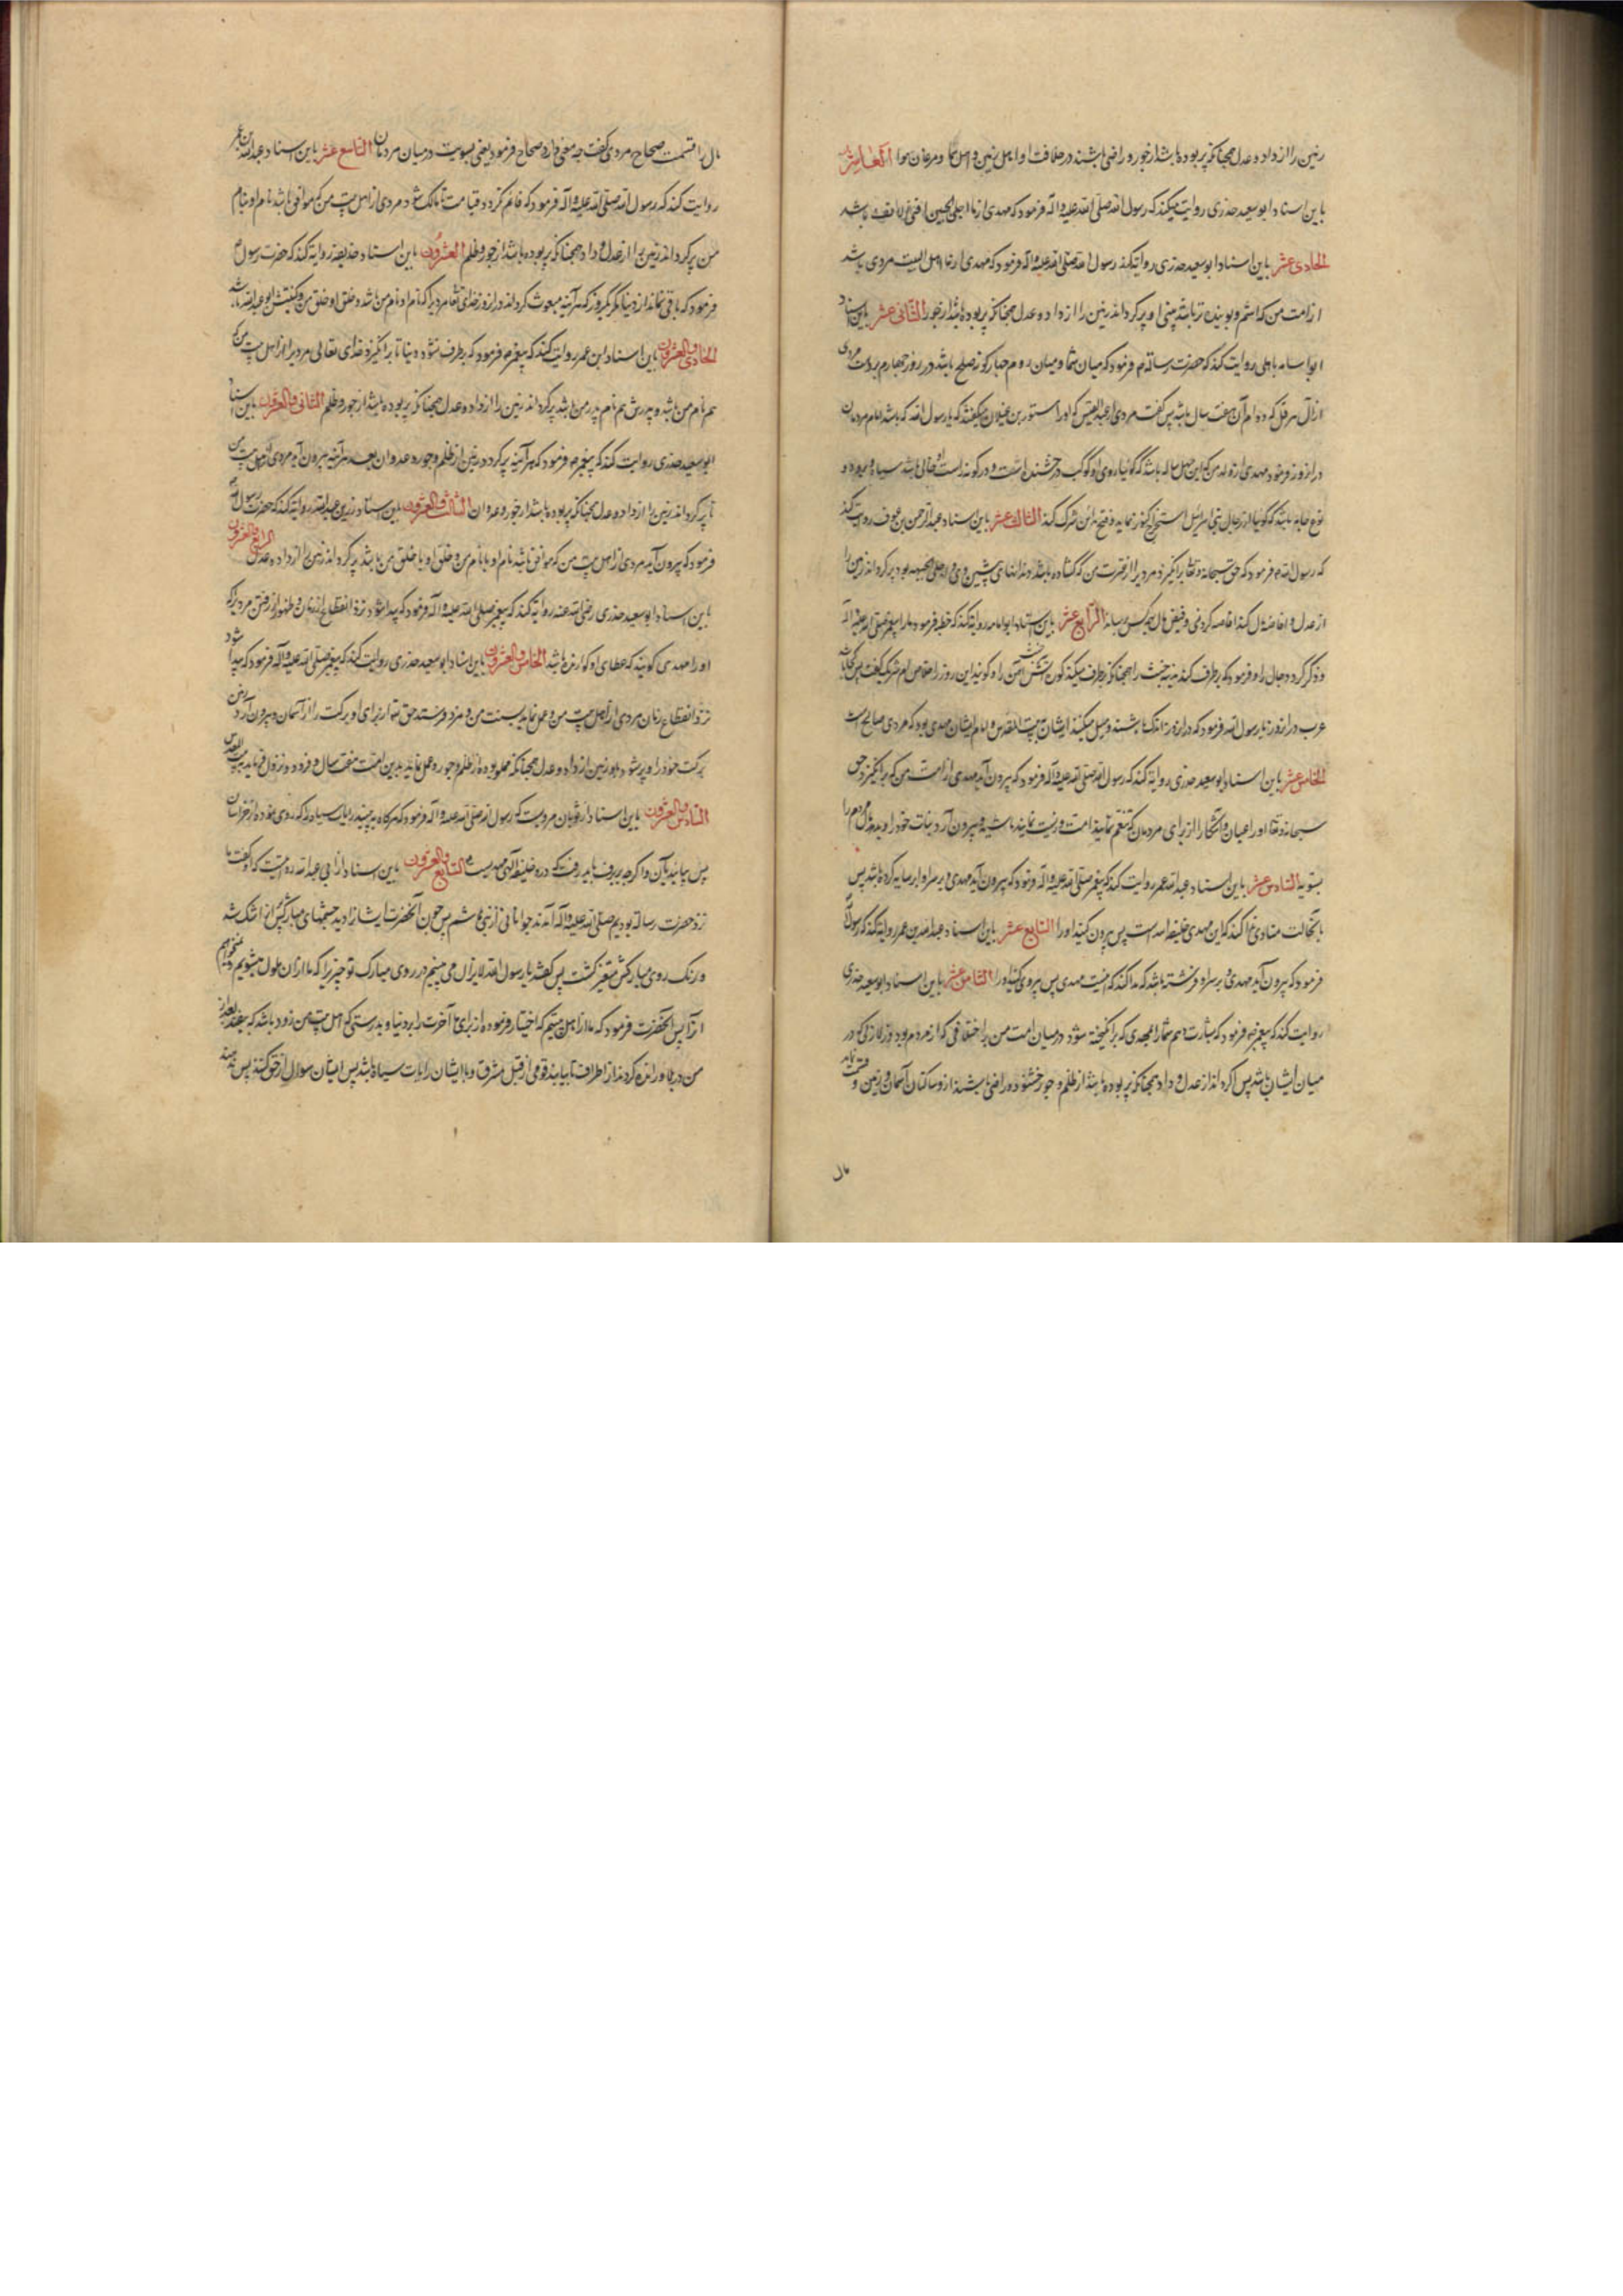 زمین را از داد و عدل همچنانکه پر بوده باشد از جور و راضی باشند در خلافت او اهل زمین و اهل سما و مرغان هوا العاشر
باین اسناد ابوسعید خدری روایت میکند که رسول الله صلی الله علیه و اله فرمود که مهدی از ما اجلی الجبین اقنی الانف باشد
الحادی عشر باین اسناد ابوسعید خدری روایت کند رسول الله صلی الله علیه و اله فرمود که مهدی از ما اهل البیت مردی باشد
از امت من که اشم و بوینده تر باشد بینی او پر کرداند زمین را از داد و عدل همچنانکه پر بوده باشد از جور الثانی عشر باین اسناد
ابو امامه باهلی روایت کند که حضرت رسالت فرمود که میان شما و میان روم چهار کونه صلح باشد در روز چهارم بر دست مردی
از آل هرقل که دوام آن هفت سال باشد پس کفت مردی از عبد القیس که او را مستور بن غیلان میکفتند که یا رسول الله که باشد امام مردمان
در ان روز فرمود مهدی از ولد من که ابن چهل ساله باشد که کوئیا روی او کوکب درخشنده است و در کونه راست او خالی باشد سیاه و بر او دو
نوع جامه باشد که کوئیا از رجال بنی اسرائیل استخراج کنوز نماید و فتح مداین شرک کند الثالث عشر باین اسناد عبد الرحمن بن عوف روایت کند
که رسول الله فرمود که حق سبحانه و تعالی بر انکیزد مردی را از عترت من که کشاده باشد دندانهای پیشین وی و اجلی الجبهه بود پر کرداند زمین را
از عدل و افاضه مال کند افاضه کردنی و فیض مال بیکس برساند الرابع عشر باین اسناد ابو امامه روایت کند که خطبه فرمود ما را پیغمبر صلی الله علیه و اله
و ذکر کرد دجال را و فرمود که برطرف کند مدینه خبث را همچنانکه برطرف میکند کوره خبث آهن را و کویند این روز را خلاص ام شریک کفت پس کجااند
عرب در ان روز یا رسول الله فرمود که در ان روز اندک باشند و میل میکنند ایشان به بیت المقدس و امام ایشان مهدی بود که مردی صالح است
الخامس عشر باین اسناد ابوسعید خدری روایت کند که رسول الله صلی الله علیه و اله فرمود که بیرون آید مهدی از امت من که بر انکیزد حق
سبحانه و تعالی او را عیان و آشکارا از برای مردمان که تنعم نمایند امت و زیست نمایند ماشیه و بیرون آرد نبات خود را و بدهد مال مردم را
بسویه السادس عشر باین اسناد عبد الله عمر روایت کند که پیغمبر صلی الله علیه و اله فرمود که بیرون آید مهدی و بر سر او ابر سایه کرده باشد پس
بانحالت منادی ندا کند که این مهدی خلیفه الله است پس پیروی کنید او را السابع عشر باین اسناد عبد الله بن عمر روایت کند که رسول
فرمود که بیرون آید مهدی و بر سر او فرشته باشد که ندا کند که اینست مهدی پس پیروی کنید او را الثامن عشر باین اسناد ابوسعید خدری
روایت کند که پیغمبر فرمود که بشارت دهم شما را بمهدی که بر انکیخته شود در میان امت من بر اختلافی که از مردم بود و زلازلی که در
میان ایشان باشد پس پر کرداند از عدل و داد همچنانکه پر بوده باشد از ظلم و جور خشنود و راضی باشند ازو ساکنان آسمان و زمین و قسمت نماید
مال
مال را قسمت صحاح مردی کفت چه معنی دارد صحاح فرمود یعنی بسویت در میان مردمان التاسع عشر باین اسناد عبد الله بن عمر
روایت کند که رسول الله صلی الله علیه و اله فرمود که قائم نکردد قیامت تا مالک شود مردی از اهل بیت من که موافق باشد نام او بنام
من پر کرداند زمین را از عدل و داد همچنانکه پر بوده باشد از جور و ظلم العشرون باین اسناد حذیفه روایت کند که حضرت رسول
فرمود که باقی نماند از دنیا مکر یکروز که هر آینه مبعوث کرداند در ان روز خدای تعالی مردی را که نام او نام من باشد و خلق او خلق من و کنیتش ابو عبد الله باشد
الحادی و العشرون باین اسناد ابن عمر روایت کند که پیغمبر فرمود که برطرف نشود دنیا تا بر انکیزد خدای تعالی مردی را از اهل بیت من که
هم نام من باشد و پدرش هم نام پدر من باشد پر کرداند زمین را از داد و عدل همچنانکه پر بوده باشد از جور و ظلم الثانی و العشرون باین اسناد
ابوسعید خدری روایت کند که پیغمبر فرمود که هر آینه پر کردد زمین از ظلم و جور و عدوان بعد هر آینه بیرون آید مردی از اهل بیت من
تا پر کرداند زمین را از داد و عدل همچنانکه پر بوده باشد از جور و عدوان الثالث و العشرون باین اسناد زر بن عبد الله روایت کند که حضرت رسول
فرمود که بیرون آید مردی از اهل بیت من که موافق باشد نام او با نام من و خلق او با خلق من باشد پر کرداند زمین را از داد و عدل الرابع و العشرون
باین اسناد ابوسعید خدری رضی الله عنه روایت کند که پیغمبر صلی الله علیه و اله فرمود که پیدا شود نزد انقطاع از زمان و ظهور از فتن مردیکه
او را مهدی کویند که عطای او کوارنده باشد الخامس و العشرون باین اسناد ابوسعید خدری روایت کند که پیغمبر صلی الله علیه و اله فرمود که پیدا شود
نزد انقطاع زمان مردی از اهل بیت من و عمل نماید بسنت من و فرستد حق تعالی از برای او برکت را از آسمان و بیرون آرد زمین
برکت خود را و پر شود باو زمین از داد و عدل همچنانکه مملو بوده از ظلم و جور و عمل نماید بدین امت هفت سال و فرود و نزول نماید ببیت المقدس
السادس و العشرون باین اسناد از ثوبان مرویست که رسول الله صلی الله علیه و اله فرمود که هر کاه به بینید رایات سیاه را که روی نموده از خراسان
پس بیایید بآن و اکرچه ببرف باید رفت که درو خلیفه الهی مهدیست السابع و العشرون باین اسناد از ابی عبد الله روایت که او کفت ما
نزد حضرت رسالت بودیم صلی الله علیه و اله آمدند جوانانی از بنی هاشم پس چون آنحضرت ایشان را دید چشمهای مبارکش پر از اشک شد
و رنک روی مبارکش متغیر کشت پس کفتند یا رسول الله لا یزال می بینیم در روی مبارک تو چیزی را که ما از ان ملول میشویم
از آن پس آنحضرت فرمود که ما از اهل بیتیم که اختیار فرموده از برای ما آخرت را بر دنیا و بدرستی که اهل بیت من زود باشد که بیفتند بعد از
من در بلا و رانده کردند از اطراف تا بیایند قومی از قبل مشرق و با ایشان رایات سیاه باشد پس ایشان سوال از حق کنند پس ندهند